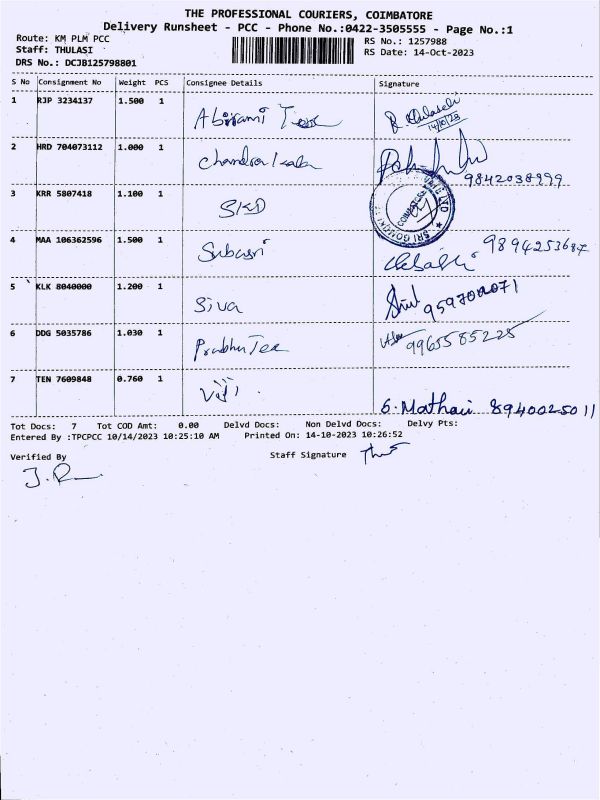 THE PROFESSIONAL COURIERS, COIMBATORE
Delivery Runsheet - PCC - Phone No.:0422-3505555 - Page No.:1
Route: KM PLM PCC
RS No.: 1257988
Staff: THULASI
RS Date: 14-Oct-2023
DRS No.: DCJB125798801
S No Consignment No Weight PCS Consignee Details Signature
1 RJP 3234137 1.500 1 Abirami Tex
14/10/23
2 HRD 704073112 1.000 1 Chandra
9842038999
3 KRR 5807418 1.100 1 SKD
COIMBATORE
4 MAA 106362596 1.500 1 Subasri 9894253687
5 KLK 8040000 1.200 1 Siva
6 DDG 5035786 1.030 1 Prabhu Tex 9965585225
7 TEN 7609848 0.760 1 Viji
8940025011
Tot Docs: 7 Tot COD Amt: 0.00 Delvd Docs: Non Delvd Docs: Delvy Pts:
Entered By :TPCPCC 10/14/2023 10:25:10 AM Printed On: 14-10-2023 10:26:52
Verified By Staff Signature